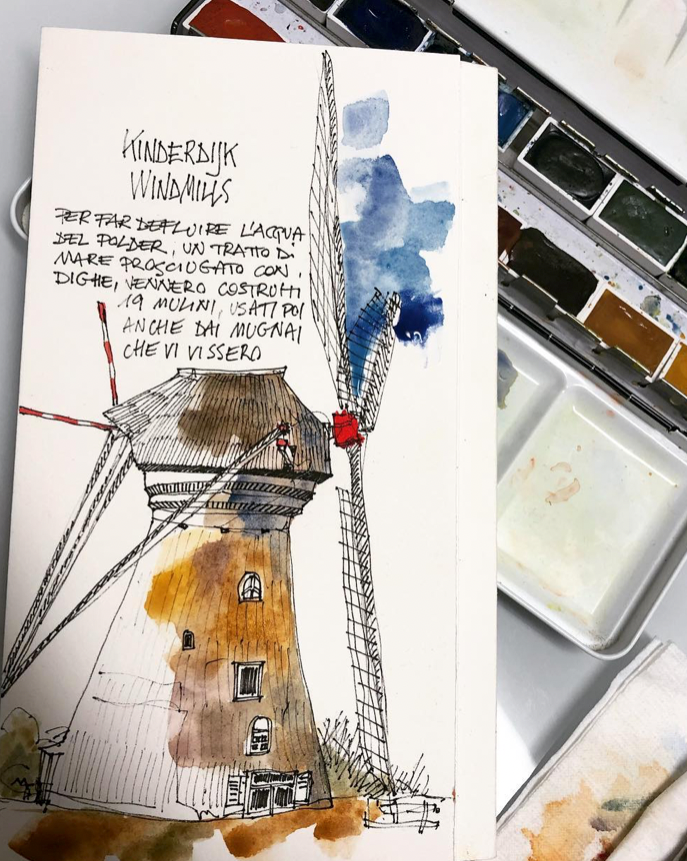 KINDERDIJK
WINDMILLS
PER FAR DEFLUIRE L'ACQUA
DEL POLDER, UN TRATTO DI
MARE PROSCIUGATO CON
DIGHE, VENNERO COSTRUITI
19 MULINI, USATI POI
ANCHE DAI MUGNAI
CHE VI VISSERO